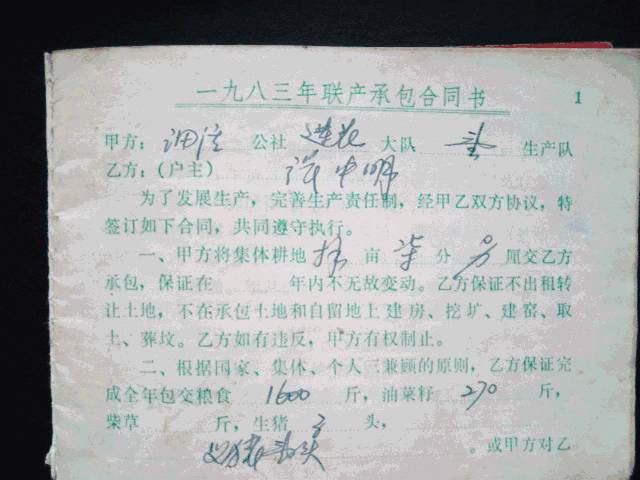 一九八三年联产承包合同书 1
甲方： 公社 莲花 大队 生产队
乙方：（户主） 中明
为了发展生产，完善生产责任制，经甲乙双方协议，特
签订如下合同，共同遵守执行。
一、甲方将集体耕地 亩 柒 分 厘交乙方
承包，保证在 年内不无故变动。乙方保证不出租转
让土地，不在承包土地和自留地上建房、挖圹、建窑、取
土、葬坟。乙方如有违反，甲方有权制止。
二、根据国家、集体、个人三兼顾的原则，乙方保证完
成全年包交粮食 1600 斤，油菜籽 270 斤，
柴草 斤，生猪 头，
。或甲方对乙